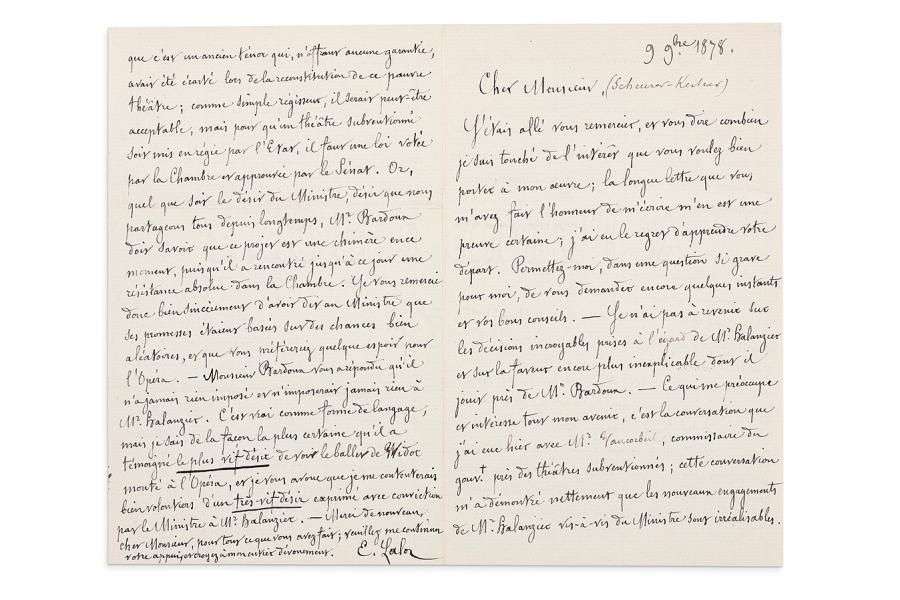 9 9bre 1878.
Cher Monsieur, (Scheurer-Kestner)
J'étais allé vous remercier, et vous dire combien
je suis touché de l'intérêt que vous voulez bien
porter à mon œuvre ; la longue lettre que vous
m'avez fait l'honneur de m'écrire m'en est une
preuve certaine ; j'ai eu le regret d'apprendre votre
départ. Permettez-moi, dans une question si grave
pour moi, de vous demander encore quelques instants
et vos bons conseils. — Je n'ai pas à revenir sur
les décisions incroyables prises à l'égard de Mr. Halanzier
et sur la faveur encore plus inexplicable dont il
jouit près de Mr. Bardoux. — Ce qui me préoccupe
et intéresse tout mon avenir, c'est la conversation que
j'ai eue hier avec Mr. Vaucorbeil, commissaire du
gouvt près des théâtres subventionnés ; cette conversation
m'a démontré nettement que les nouveaux engagements
de Mr. Halanzier vis-à-vis du Ministre sont irréalisables.
que c'est un ancien ténor qui, n'offrant aucune garantie,
avait été écarté lors de la reconstitution de ce pauvre
théâtre ; comme simple régisseur, il serait peut-être
acceptable, mais pour qu'un théâtre subventionné
soit mis en régie par l'Etat, il faut une loi votée
par la Chambre et approuvée par le Sénat. Or,
quel que soit le désir du Ministre, désir que nous
partageons tous depuis longtemps, Mr. Bardoux
doit savoir que ce projet est une chimère en ce
moment, puisqu'il a rencontré jusqu'à ce jour une
résistance absolue dans la Chambre. Je vous remercie
donc bien sincèrement d'avoir dit au Ministre que
ses promesses étaient basées sur des chances bien
aléatoires, et que vous préfériez quelque espoir pour
l'Opéra. — Monsieur Bardoux vous a répondu qu'il
n'a jamais rien imposé et n'imposerait jamais rien à
Mr. Halanzier. C'est vrai comme forme de langage ;
mais je sais de la façon la plus certaine qu'il a
témoigné le plus vif désir de voir le ballet de Widor
monté à l'Opéra, et je vous avoue que je me contenterais
bien volontiers d'un très-vif désir exprimé avec conviction
par le Ministre à Mr. Halanzier. — Merci de nouveau,
cher Monsieur, pour tout ce que vous avez fait ; veuillez me continuer
votre appui, et croyez à mon entier dévouement. E. Lalo